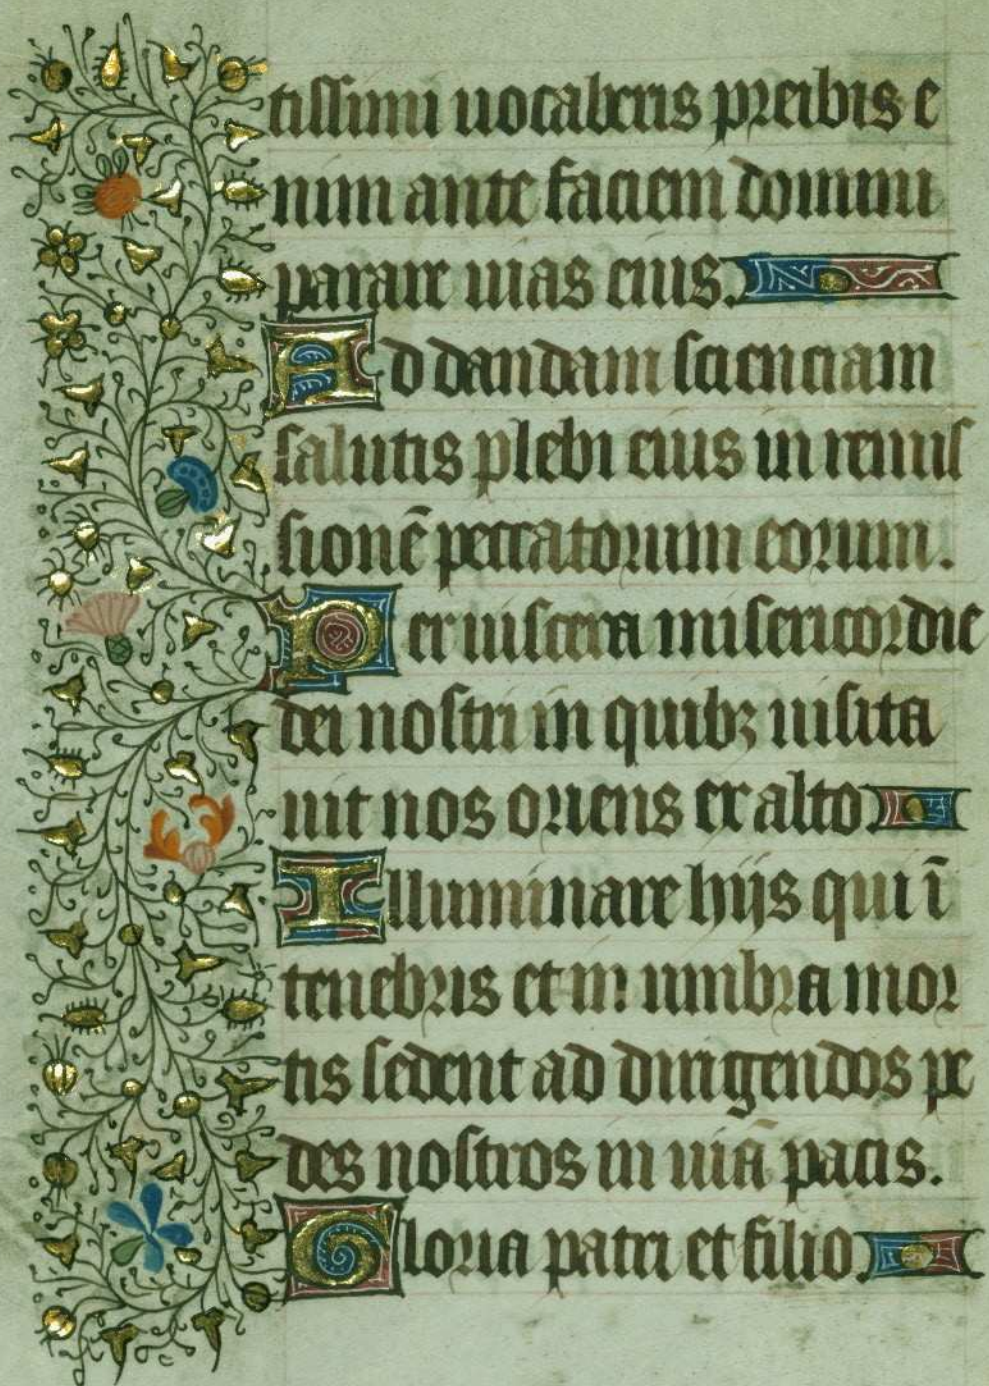 tissimi uocaberis preibis e
nim ante faciem domini
parare uias eius.
Ad dandam scienciam
salutis plebi eius in remis
sionē peccatorum eorum.
Per uiscera misericordie
dei nostri in quibꝫ uisita
uit nos oriens ex alto
Illuminare hijs qui ī
tenebris et in umbra mor
tis sedent ad dirigendos pe
des nostros in uiā pacis.
Gloria patri et filio